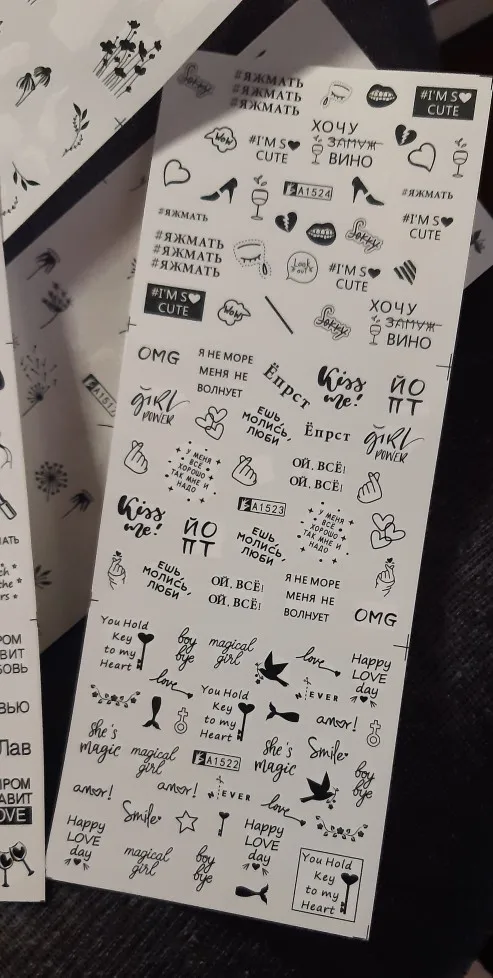 Sorry
#ЯЖМАТЬ
#ЯЖМАТЬ
#ЯЖМАТЬ
#I'M S
CUTE
Wow
#I'M S
CUTE
ХОЧУ
ЗАМУЖ
ВИНО
#ЯЖМАТЬ
A1524
#ЯЖМАТЬ
#I'M S
CUTE
Sorry
#ЯЖМАТЬ
#ЯЖМАТЬ
#ЯЖМАТЬ
Look
out
#I'M S
CUTE
#I'M S
CUTE
Wow
Sorry
ХОЧУ
ЗАМУЖ
ВИНО
OMG
Я НЕ МОРЕ
МЕНЯ НЕ
ВОЛНУЕТ
Ёпрст
Kiss
me!
ЙО
ПТ
GIRL
POWER
ЕШЬ
МОЛИСЬ,
ЛЮБИ
Ёпрст
GIRL
POWER
У МЕНЯ
ВСЁ
ХОРОШО
ТАК МНЕ И
НАДО
ОЙ, ВСЁ!
ОЙ, ВСЁ!
A1523
Kiss
me!
ЙО
ПТ
ЕШЬ
МОЛИСЬ,
ЛЮБИ
У МЕНЯ
ВСЁ
ХОРОШО
ТАК МНЕ И
НАДО
ЕШЬ
МОЛИСЬ,
ЛЮБИ
ОЙ, ВСЁ!
ОЙ, ВСЁ!
Я НЕ МОРЕ
МЕНЯ НЕ
ВОЛНУЕТ
OMG
You Hold
Key
to my
Heart
boy
bye
magical
girl
love
Happy
LOVE
day
You Hold
Key
to my
Heart
EVER
amor!
she's
magic
magical
girl
A1522
she's
magic
Smile
boy
bye
amor!
amor!
EVER
love
Happy
LOVE
day
Smile
Happy
LOVE
day
magical
girl
boy
bye
You Hold
Key
to my
Heart